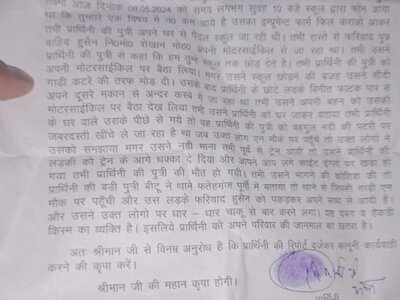 आज दिनांक 08.05.2024 को समय लगभग सुबह 10 बजे स्कूल द्वारा फोन आया
था कि तुम्हारे एक विषय में न0 कम आये है उसका इम्प्रूमेन्ट फार्म फिल कराओ आकर
तभी प्रार्थिनी की पुत्री अपने घर से पैदल स्कूल जा रही थी। तभी रास्ते से फरियाद पुत्र
वाहिद हुसैन नि0मो0 शेखान मोस0 अपनी मोटरसाईकिल से जा रहा था। तभी उसने
प्रार्थिनी की पुत्री से कहा कि हम तुम्हे स्कूल तक छोड़ देते है। तभी प्रार्थिनी की पुत्री को
अपनी मोटरसाईकिल पर बैठा लिया। मगर उसने स्कूल छोडने की बजह उसने सीदी
गाडी कटरे की तरफ मोड दी। उसके बाद प्रार्थिनी के छोटे लडके विनीत फाटक पार से
अपने दूसरे मकान से अन्दर कस्बे में जा रहा था तभी उसने अपनी बहन को उसकी
मोटरसाईकिल पर बैठा देख लिया तभी उसने प्रार्थिनी को घर जाकर बताया तभी प्रार्थिनी
के घर वाले उसके पीछे से गये तो यह प्रार्थिनी की पुत्री को बहगुल नदी की पटरी पर
जबरदस्ती खींचे ले जा रहा था जब उक्त लोग एन मौके पर पहुँचे तो उक्त लोगों ने
उसको समझाया मगर उसने नही माना तभी पूर्व से ट्रेन आयी तो उसने प्रार्थिनी की
लडकी को ट्रेन के आगे धक्का दे दिया और आपने आप लग साईट इंगला पर खड़ा हो
गया तभी प्रार्थिनी की पुत्री की मौत हो गयी। तभी उसने भागने की कोशिश की तो
प्रार्थिनी की बडी पुत्री बीटू ने थाने फतेहगंज पूर्वी में बताया तो थाने से जिपसी गाडी एन
मौक पर पहुँची और उस लडके फरियाद हुसैन को पकडकर अपने साथ ले आयी है।
और उसने उक्त लोगो पर धार - धार चाकू से बार करने लगा। यह दबग व हेकडी
किस्म का व्यक्ति है। इसलिये प्रार्थिनी को अपने परिवार की जानमाल का खतरा है।
अतः श्रीमान जी से विनम्र अनुरोध है कि प्रार्थिनी की रिपोर्ट दर्जकर कानूनी कार्यवाही
करने की कृपा करें।
श्रीमान जी की महान कृपा होगी।